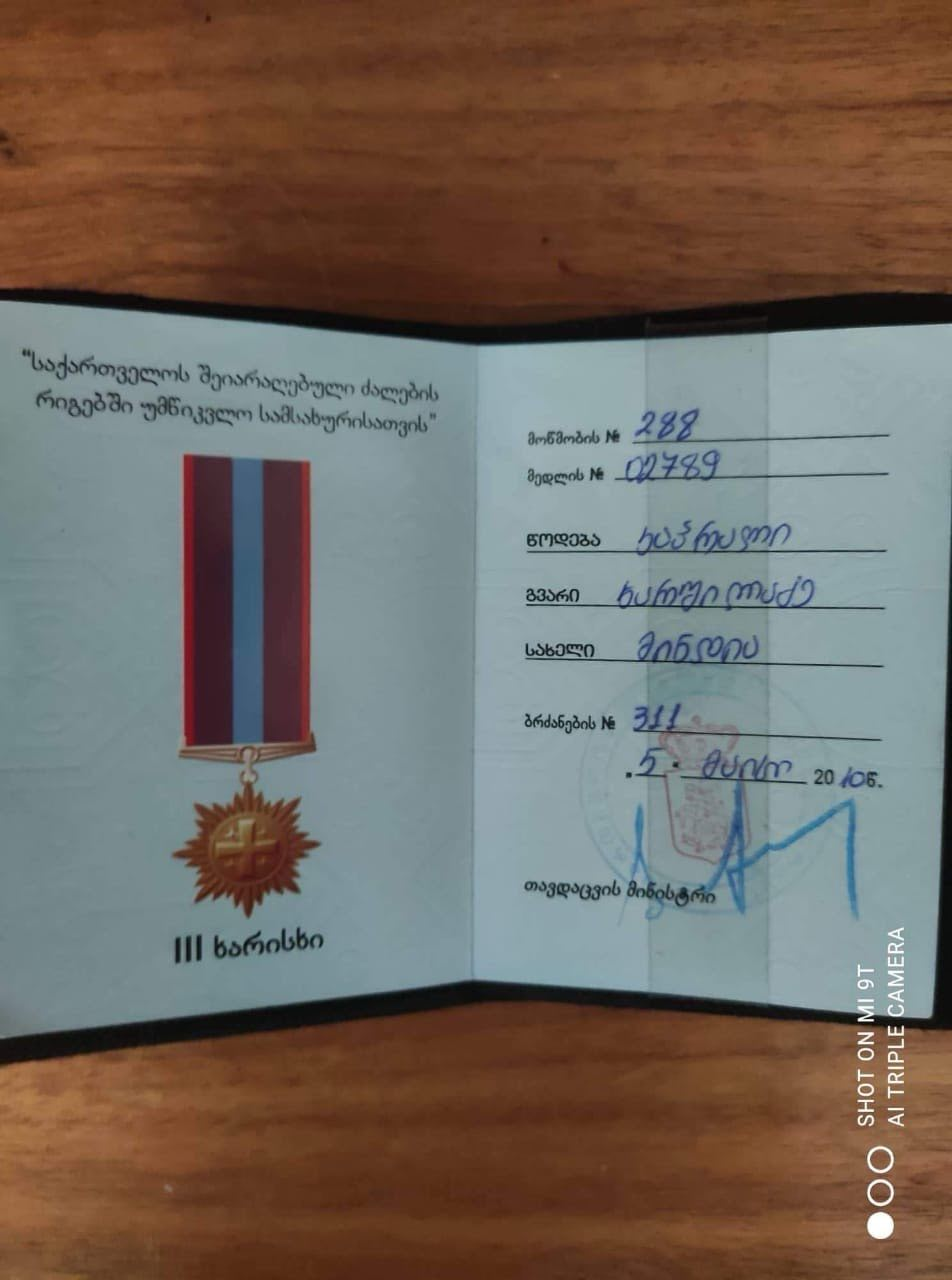 "საქართველოს შეიარაღებული ძალების
რიგებში უმწიკვლო სამსახურისათვის"
III ხარისხი
მოწმობის № 288
მედლის № 02789
წოდება კაპრალი
გვარი ხარფილაძე
სახელი მინდია
ბრძანების № 311
. 5 . მაისი 2010წ.
თავდაცვის მინისტრი
SHOT ON MI 9T
AI TRIPLE CAMERA